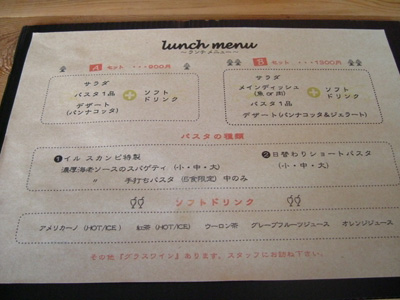 lunch menu
～ランチメニュー～
A セット ・・・900円
サラダ
パスタ1品
デザート
(パンナコッタ)
+ ソフト
ドリンク
B セット ・・・1300円
サラダ
メインディッシュ
(魚 or 肉)
パスタ1品
デザート(パンナコッタ&ジェラート)
+ ソフト
ドリンク
パスタの種類
❶イル スカンピ特製
濃厚海老ソースのスパゲティ (小・中・大)
〃 手打ちパスタ (5食限定) 中のみ
❷日替わりショートパスタ
(小・中・大)
ソフトドリンク
アメリカーノ (HOT/ICE) 紅茶 (HOT/ICE) ウーロン茶 グレープフルーツジュース オレンジジュース
その他『グラスワイン』あります。スタッフにお尋ね下さい。